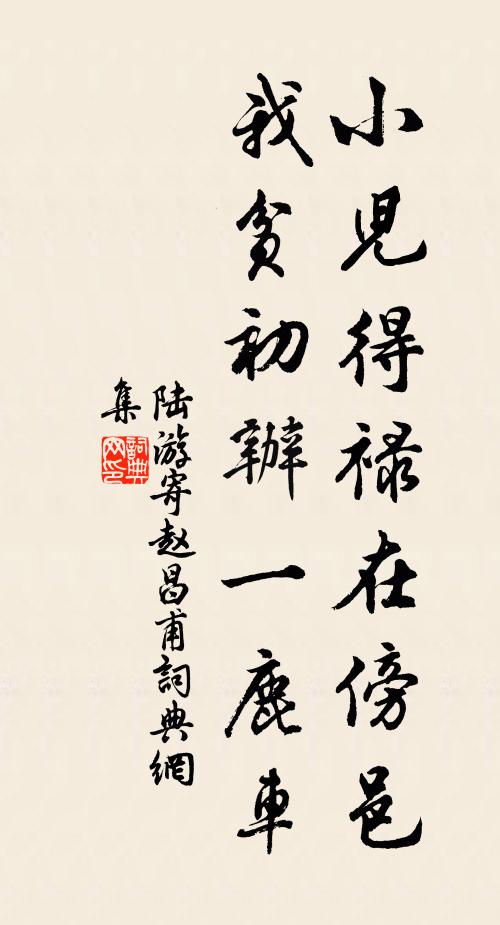 小児得禄在傍邑
我貧初辦一鹿車
陆游寄赵昌甫詞典網
集
詞典
网印